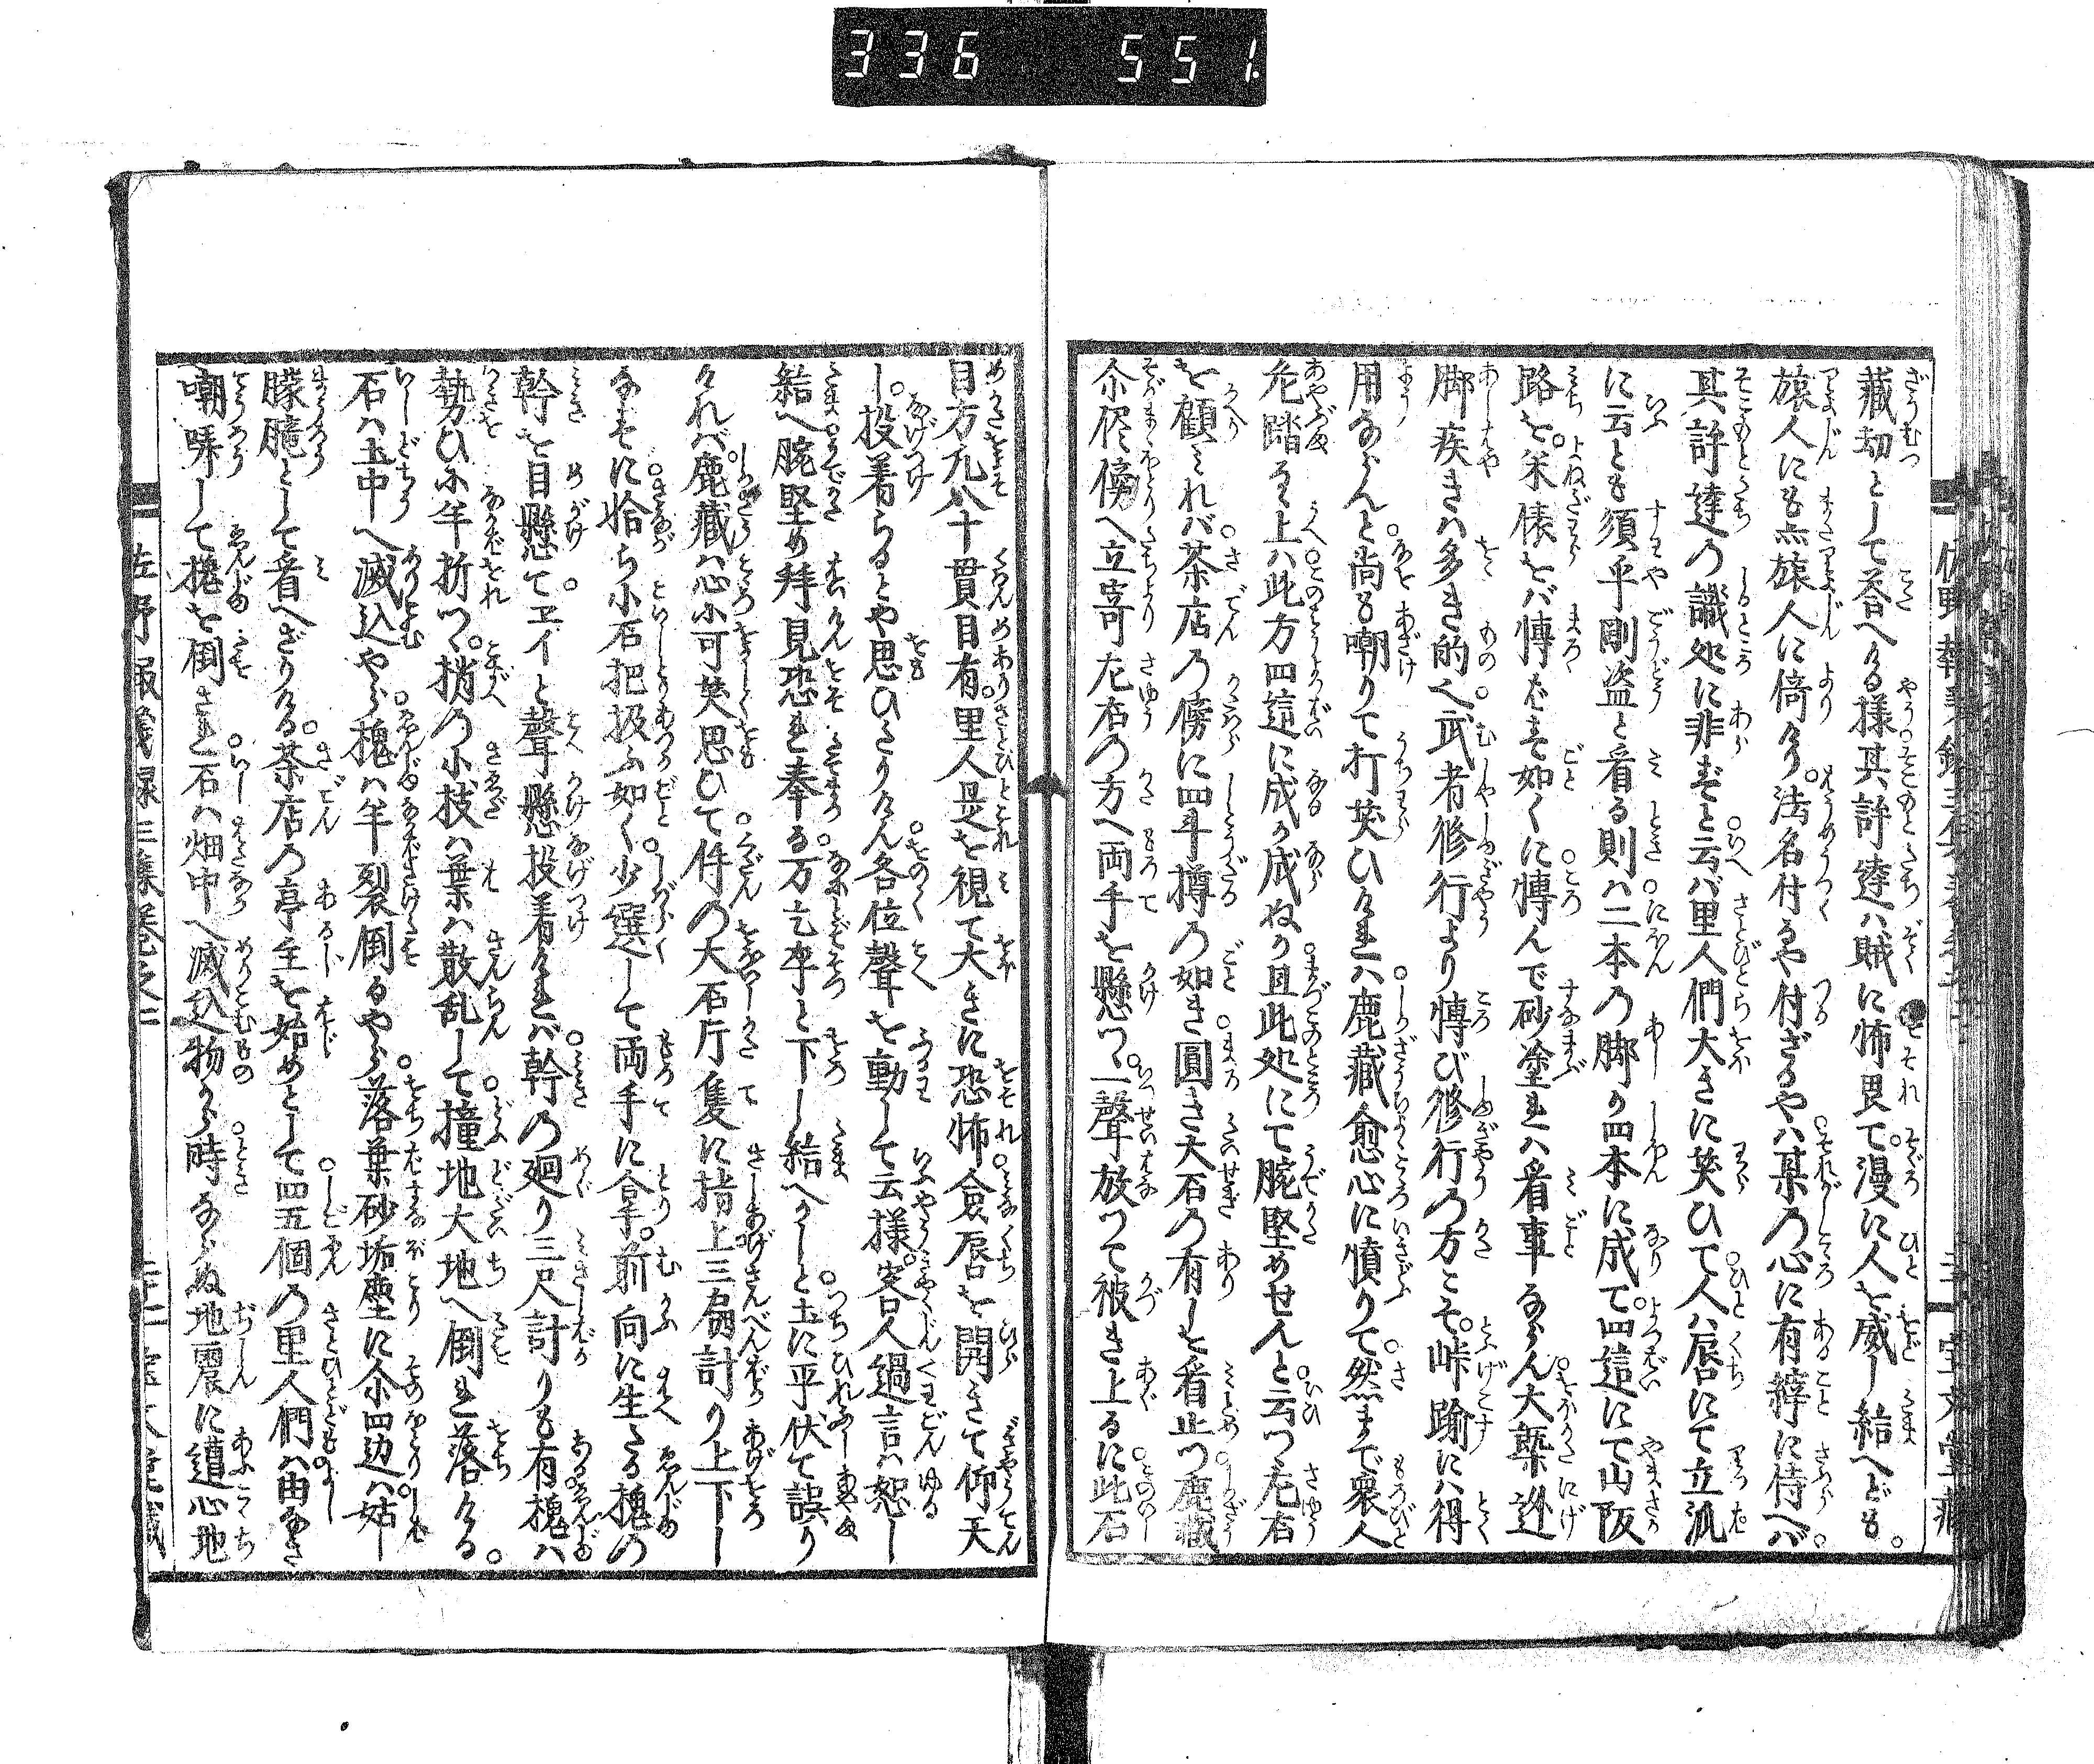 336 551.
藏切として答へる様其許達ハ賊に怖畏て。漫に人を威し結へども。
旅人にも点旅人に倚り。法名付るや付ざるやハ某の心に有縡に侍へバ。
其許達の識処に非ずと云バ里人們大きに笑ひて人ハ唇にて立派
に云とも須乎剛盗と看る則ハ二本の脚が四本に成て。四這にて山阪
路を。米俵をバ慱ばす如くに慱んで砂塗れハ看事ならん大築迯
脚疾きハ多き的。武者修行より慱び修行の方こそ。峠踰にハ得
用ならんと。尚も嘲りて打笑ひけれハ鹿藏愈心に憤りて。然まで衆人
危踏る上ハ此方四這に成か成ぬか。且此処にて腕堅めせんと。云つ左右
を顧みれバ。茶店の傍に四斗樽の如き圓き大石の有しを看止つ鹿藏
尒侭傍へ立寄左右の方へ両手を懸つ。一聲放つて被き上るに此石
目方凡八十貫目有。里人是を視て大きに恐怖僉唇を開きて仰天
し。投着らるとや思ひたりけん各位聲を動して云様。客人過言ハ恕し
結へ腕堅め拜見恐れ奉る。万乞卒と下し結へかしと。土に平伏て誤り
けれバ。鹿藏ハ心小可笑思ひて件の大石斤隻に揩上三扁計り上下し
なすに恰ち小石把扱ふ如く。少選して両手に拿。前向に生たる槐の
幹を目懸てヱイと聲懸投着けれバ。幹の廻り三尺計りも有槐ハ
勢ひに半折つ。梢の小枝ハ葉ハ散乱して撞地大地へ倒れ落ける。
石ハ土中へ滅込やら。槐ハ半裂倒るやら。落葉砂垢塵に尒四辺ハ。姑し
朦朧として看へざりける。茶店の亭主を始めとして四五個の里人們ハ由なき
嘲哢して槐を倒され石ハ畑中へ滅込物から時ならぬ地震に遭心地
佐野報義録三集卷之二
宝文堂藏